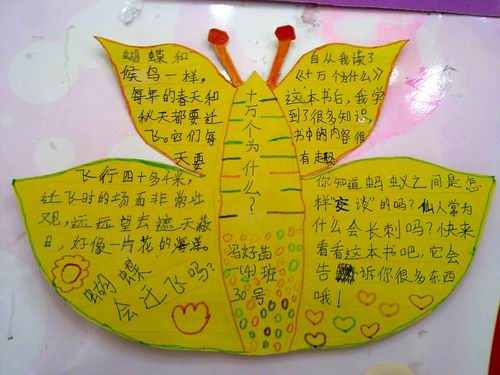 蝴蝶和
候鸟一样。
每年的春天和
秋天都要迁
飞。它们每
天要
飞行四十多千米,
迁飞时的场面非常壮
观,远远望去遮天蔽
日,好像一片花的海洋。
蝴蝶
会迁飞吗?
十万个为什么?
冯好苗
一(4)班
30号
自从我读了
《十万个为什么》
这本书后,我学
到了很多知识。
书中的内容很
有趣
你知道蚂蚁之间是怎
样“交谈”的吗?仙人掌为
什么会长刺吗?快来
看看这本书吧,它会
告诉你很多东西
哦!